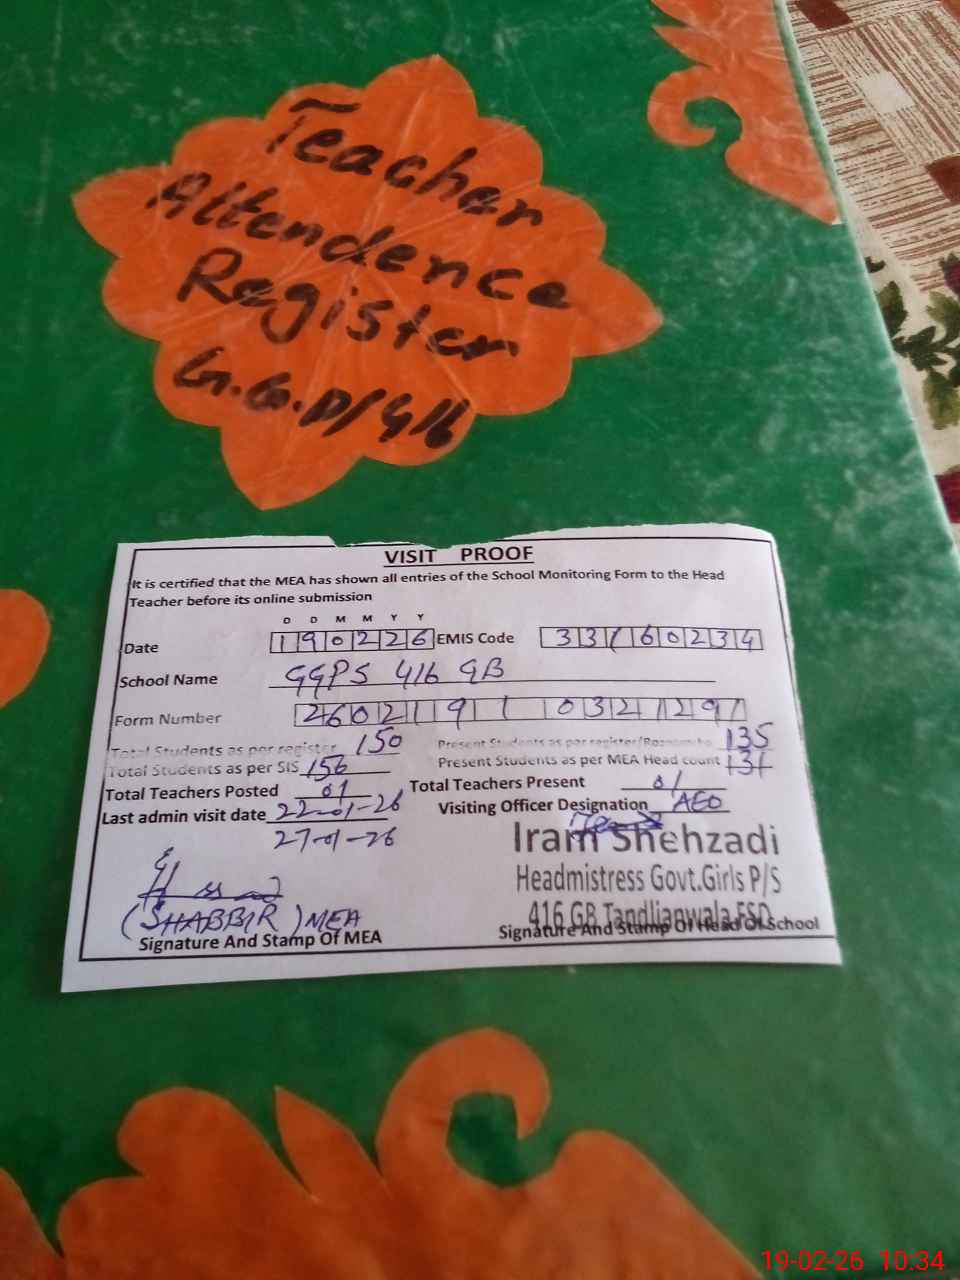 Teacher
Attendence
Register
G.G.P/416
VISIT PROOF
It is certified that the MEA has shown all entries of the School Monitoring Form to the Head
Teacher before its online submission
D D M M Y Y
Date 190226 EMIS Code 33160234
School Name GGPS 416 GB
Form Number 2602191 0321291
Total Students as per register 150 Present Students as per register/ 135
Total Students as per SIS 156 Present Students as per MEA Head count 131
Total Teachers Posted 01 Total Teachers Present 01
Last admin visit date 22-01-26 Visiting Officer Designation AEO
27-01-26
Iram Shehzadi
Headmistress Govt.Girls P/S
416 GB Tandlianwala FSD
(SHABBIR) MEA
Signature And Stamp Of MEA Signature And Stamp Of Head Of School
19-02-26 10:34